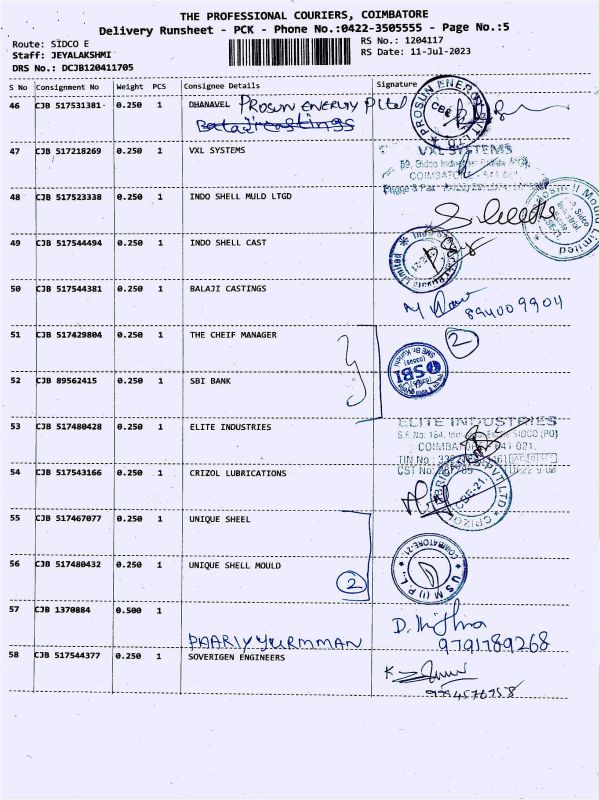 THE PROFESSIONAL COURIERS, COIMBATORE
Delivery Runsheet - PCK - Phone No.:0422-3505555 - Page No.:5
Route: SIDCO E
RS No.: 1204117
Staff: JEYALAKSHMI
RS Date: 11-Jul-2023
DRS No.: DCJB120411705
S No Consignment No Weight PCS Consignee Details Signature
46 CJB 517531381 0.250 1 DHANAVEL PROSUN ENERGY P Ltd
Balaji castings
PROSUN ENERGY PVT LTD
CBE
47 CJB 517218269 0.250 1 VXL SYSTEMS
VXL SYSTEMS
COIMBATORE
48 CJB 517523338 0.250 1 INDO SHELL MULD LTGD
49 CJB 517544494 0.250 1 INDO SHELL CAST
50 CJB 517544381 0.250 1 BALAJI CASTINGS
894009904
51 CJB 517429804 0.250 1 THE CHEIF MANAGER
2
SBI
52 CJB 89562415 0.250 1 SBI BANK
53 CJB 517480428 0.250 1 ELITE INDUSTRIES
ELITE INDUSTRIES
54 CJB 517543166 0.250 1 CRIZOL LUBRICATIONS
CBE-21
55 CJB 517467077 0.250 1 UNIQUE SHEEL
56 CJB 517480432 0.250 1 UNIQUE SHELL MOULD
2
COIMBATORE-21
U S M (I) P L
57 CJB 1370884 0.500 1
9791789268
58 CJB 517544377 0.250 1 SOVERIGEN ENGINEERS